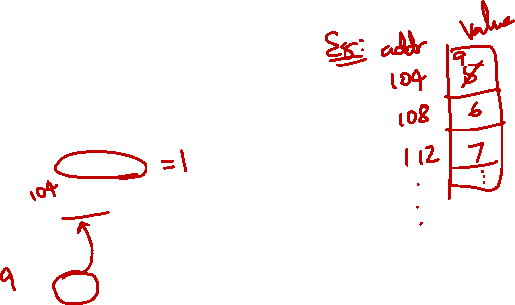 Eg: addr value
104 9 5
108 6
112 7
= 1
104
9